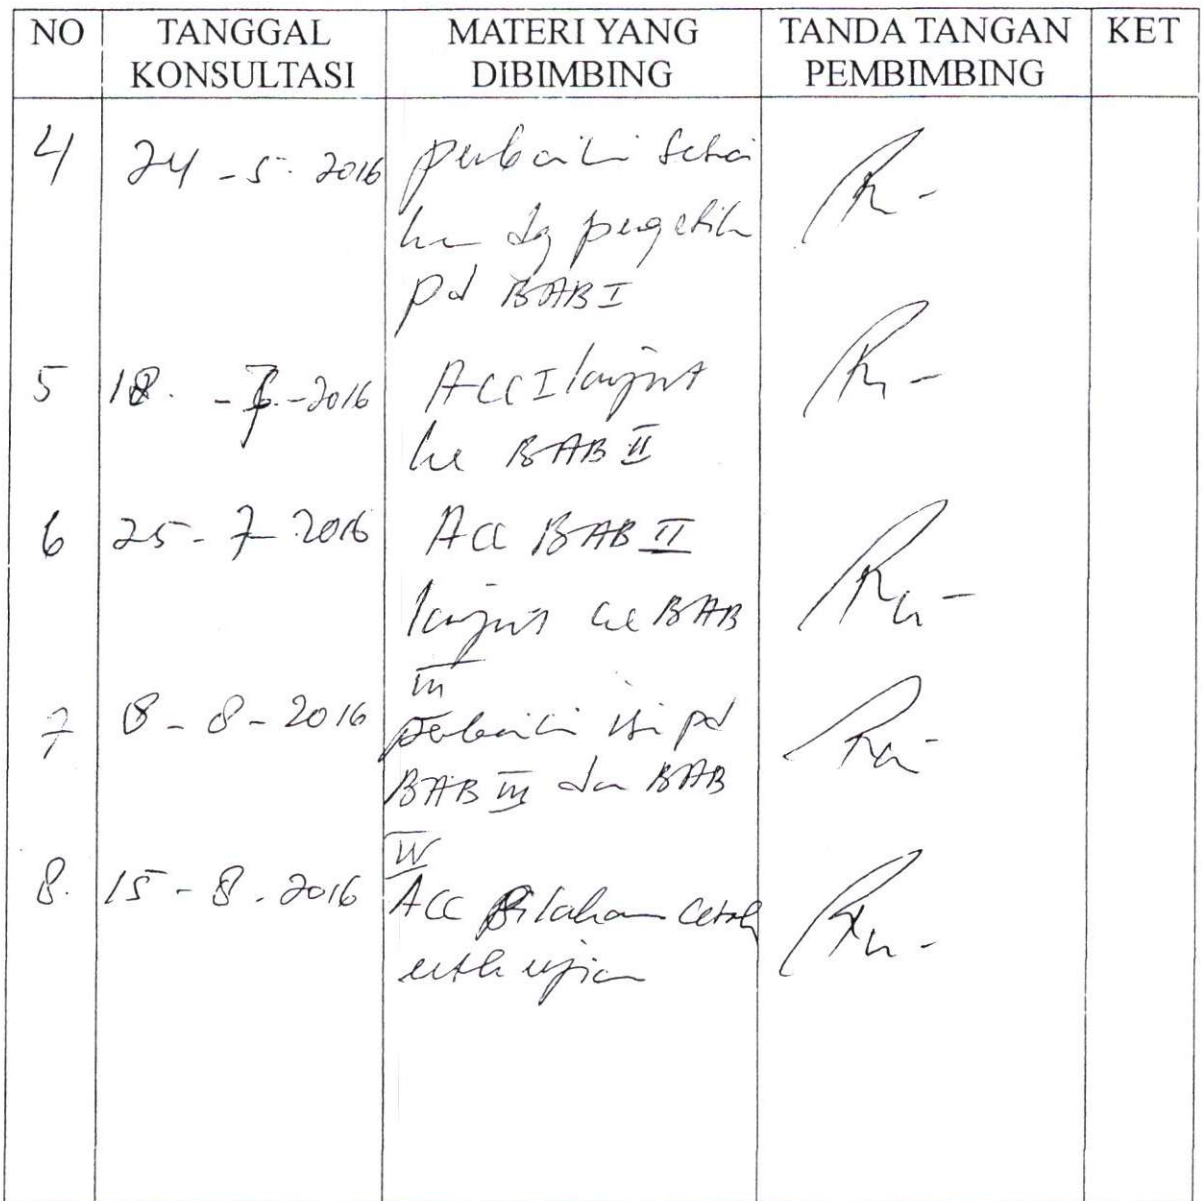 NO TANGGAL KONSULTASI MATERI YANG DIBIMBING TANDA TANGAN PEMBIMBING KET
4 24 - 5 - 2016 perbaiki
dg
pd BAB I
5 18 - 7 - 2016 ACC I lanjut
ke BAB II
6 25 - 7 - 2016 Acc BAB II
lanjut ke BAB
III
7 8 - 8 - 2016 perbaiki isi pd
BAB III dan BAB
IV
8. 15 - 8 - 2016 Acc silahan cetak
utk ujian